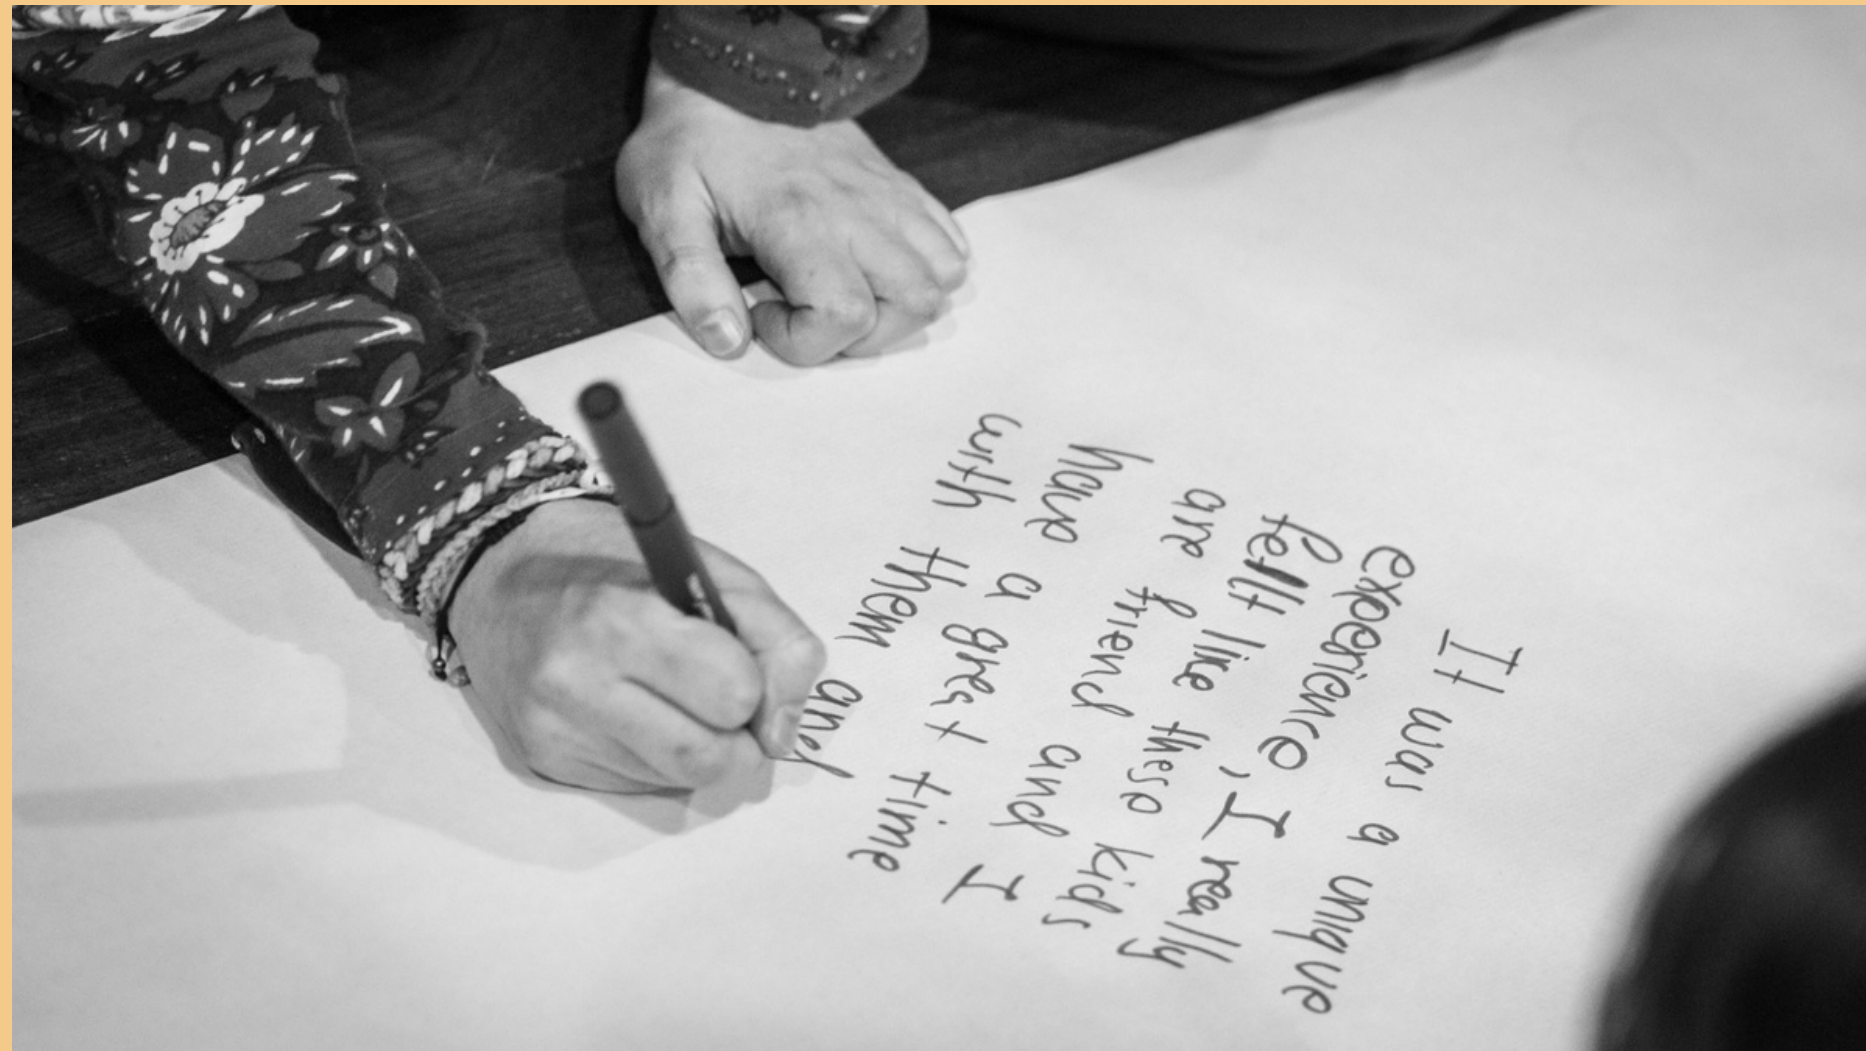 It was a unique
experience, I really
felt like these kids
are friend and I
have a great time
with them and